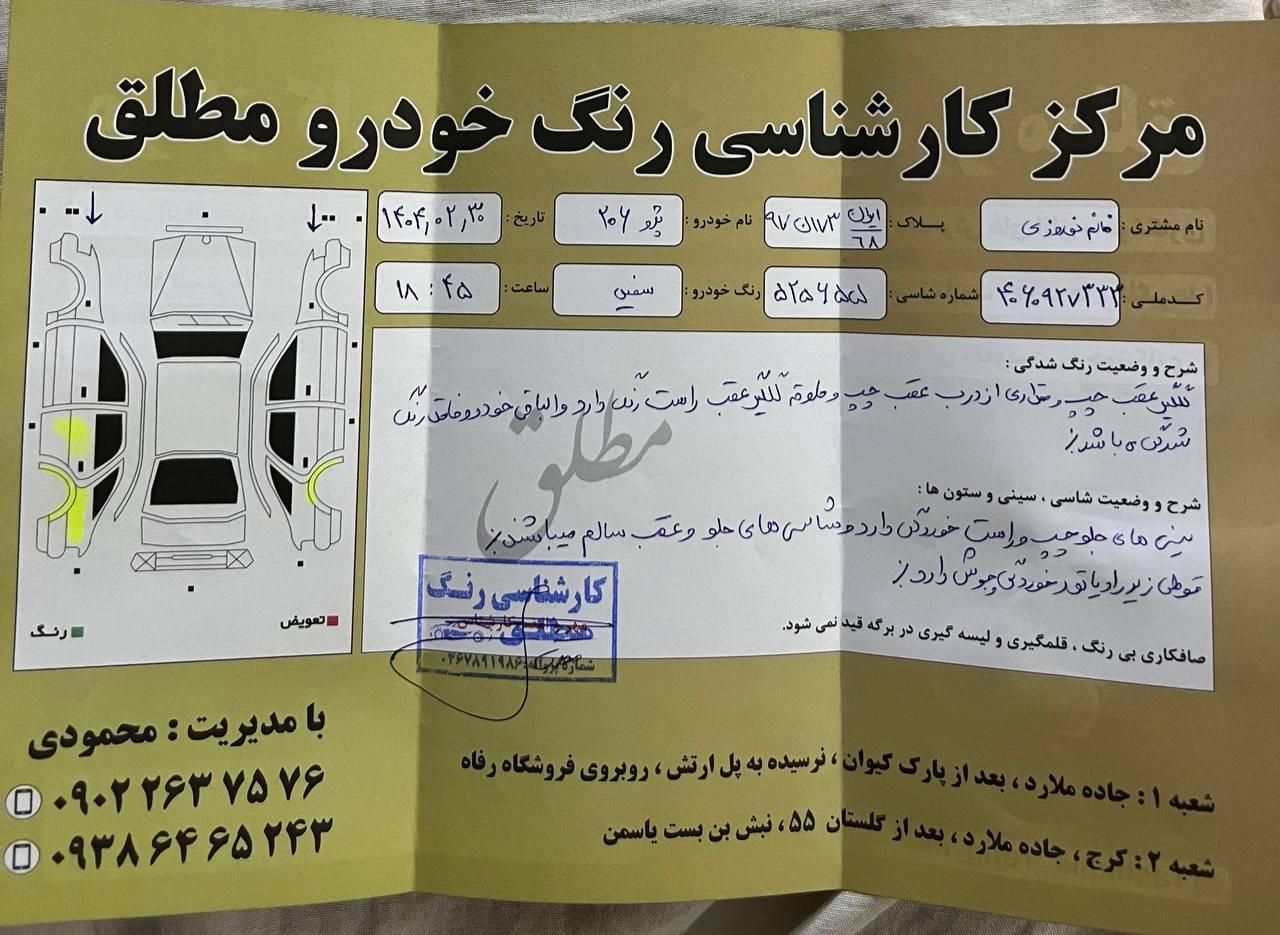 مرکز کارشناسی رنگ خودرو مطلق
نام مشتری: خانم نوروزی
پلاک: ایران ۶۸ ۹۷ن۱۷۳
نام خودرو: پژو ۲۰۶
تاریخ: ۱۴۰۴,۰۲,۳۰
کدملی: ۴۰۶۰۹۲۷۳۳۳
شماره شاسی:
رنگ خودرو: سفید
ساعت: ۱۸:۴۵
شرح و وضعیت رنگ شدگی:
گلگیر عقب چپ و مقداری از درب عقب چپ و گلگیر عقب راست رنگ دارد و الباقی خودرو فاقد رنگ
شدگی میباشد
شرح و وضعیت شاسی ، سینی و ستون ها:
سینی های جلو چپ و راست خوردگی دارد و شاسی های جلو و عقب سالم میباشند
قوطی زیر رادیاتور خوردگی و جوش دارد
صافکاری بی رنگ ، قلمگیری و لیسه گیری در برگه قید نمی شود.
مطلق
کارشناسی رنگ
مطلق
شماره پروانه: ۰۴۶۷۸۹۱۹۸۶
تعویض
رنگ
با مدیریت : محمودی
۰۹۰۲ ۲۶۳ ۷۵ ۷۶
۰۹۳۸ ۶۴ ۶۵ ۲۴۳
شعبه ۱ : جاده ملارد ، بعد از پارک کیوان ، نرسیده به پل ارتش ، روبروی فروشگاه رفاه
شعبه ۲ : کرج ، جاده ملارد ، بعد از گلستان ۵۵ ، نبش بن بست یاسمن